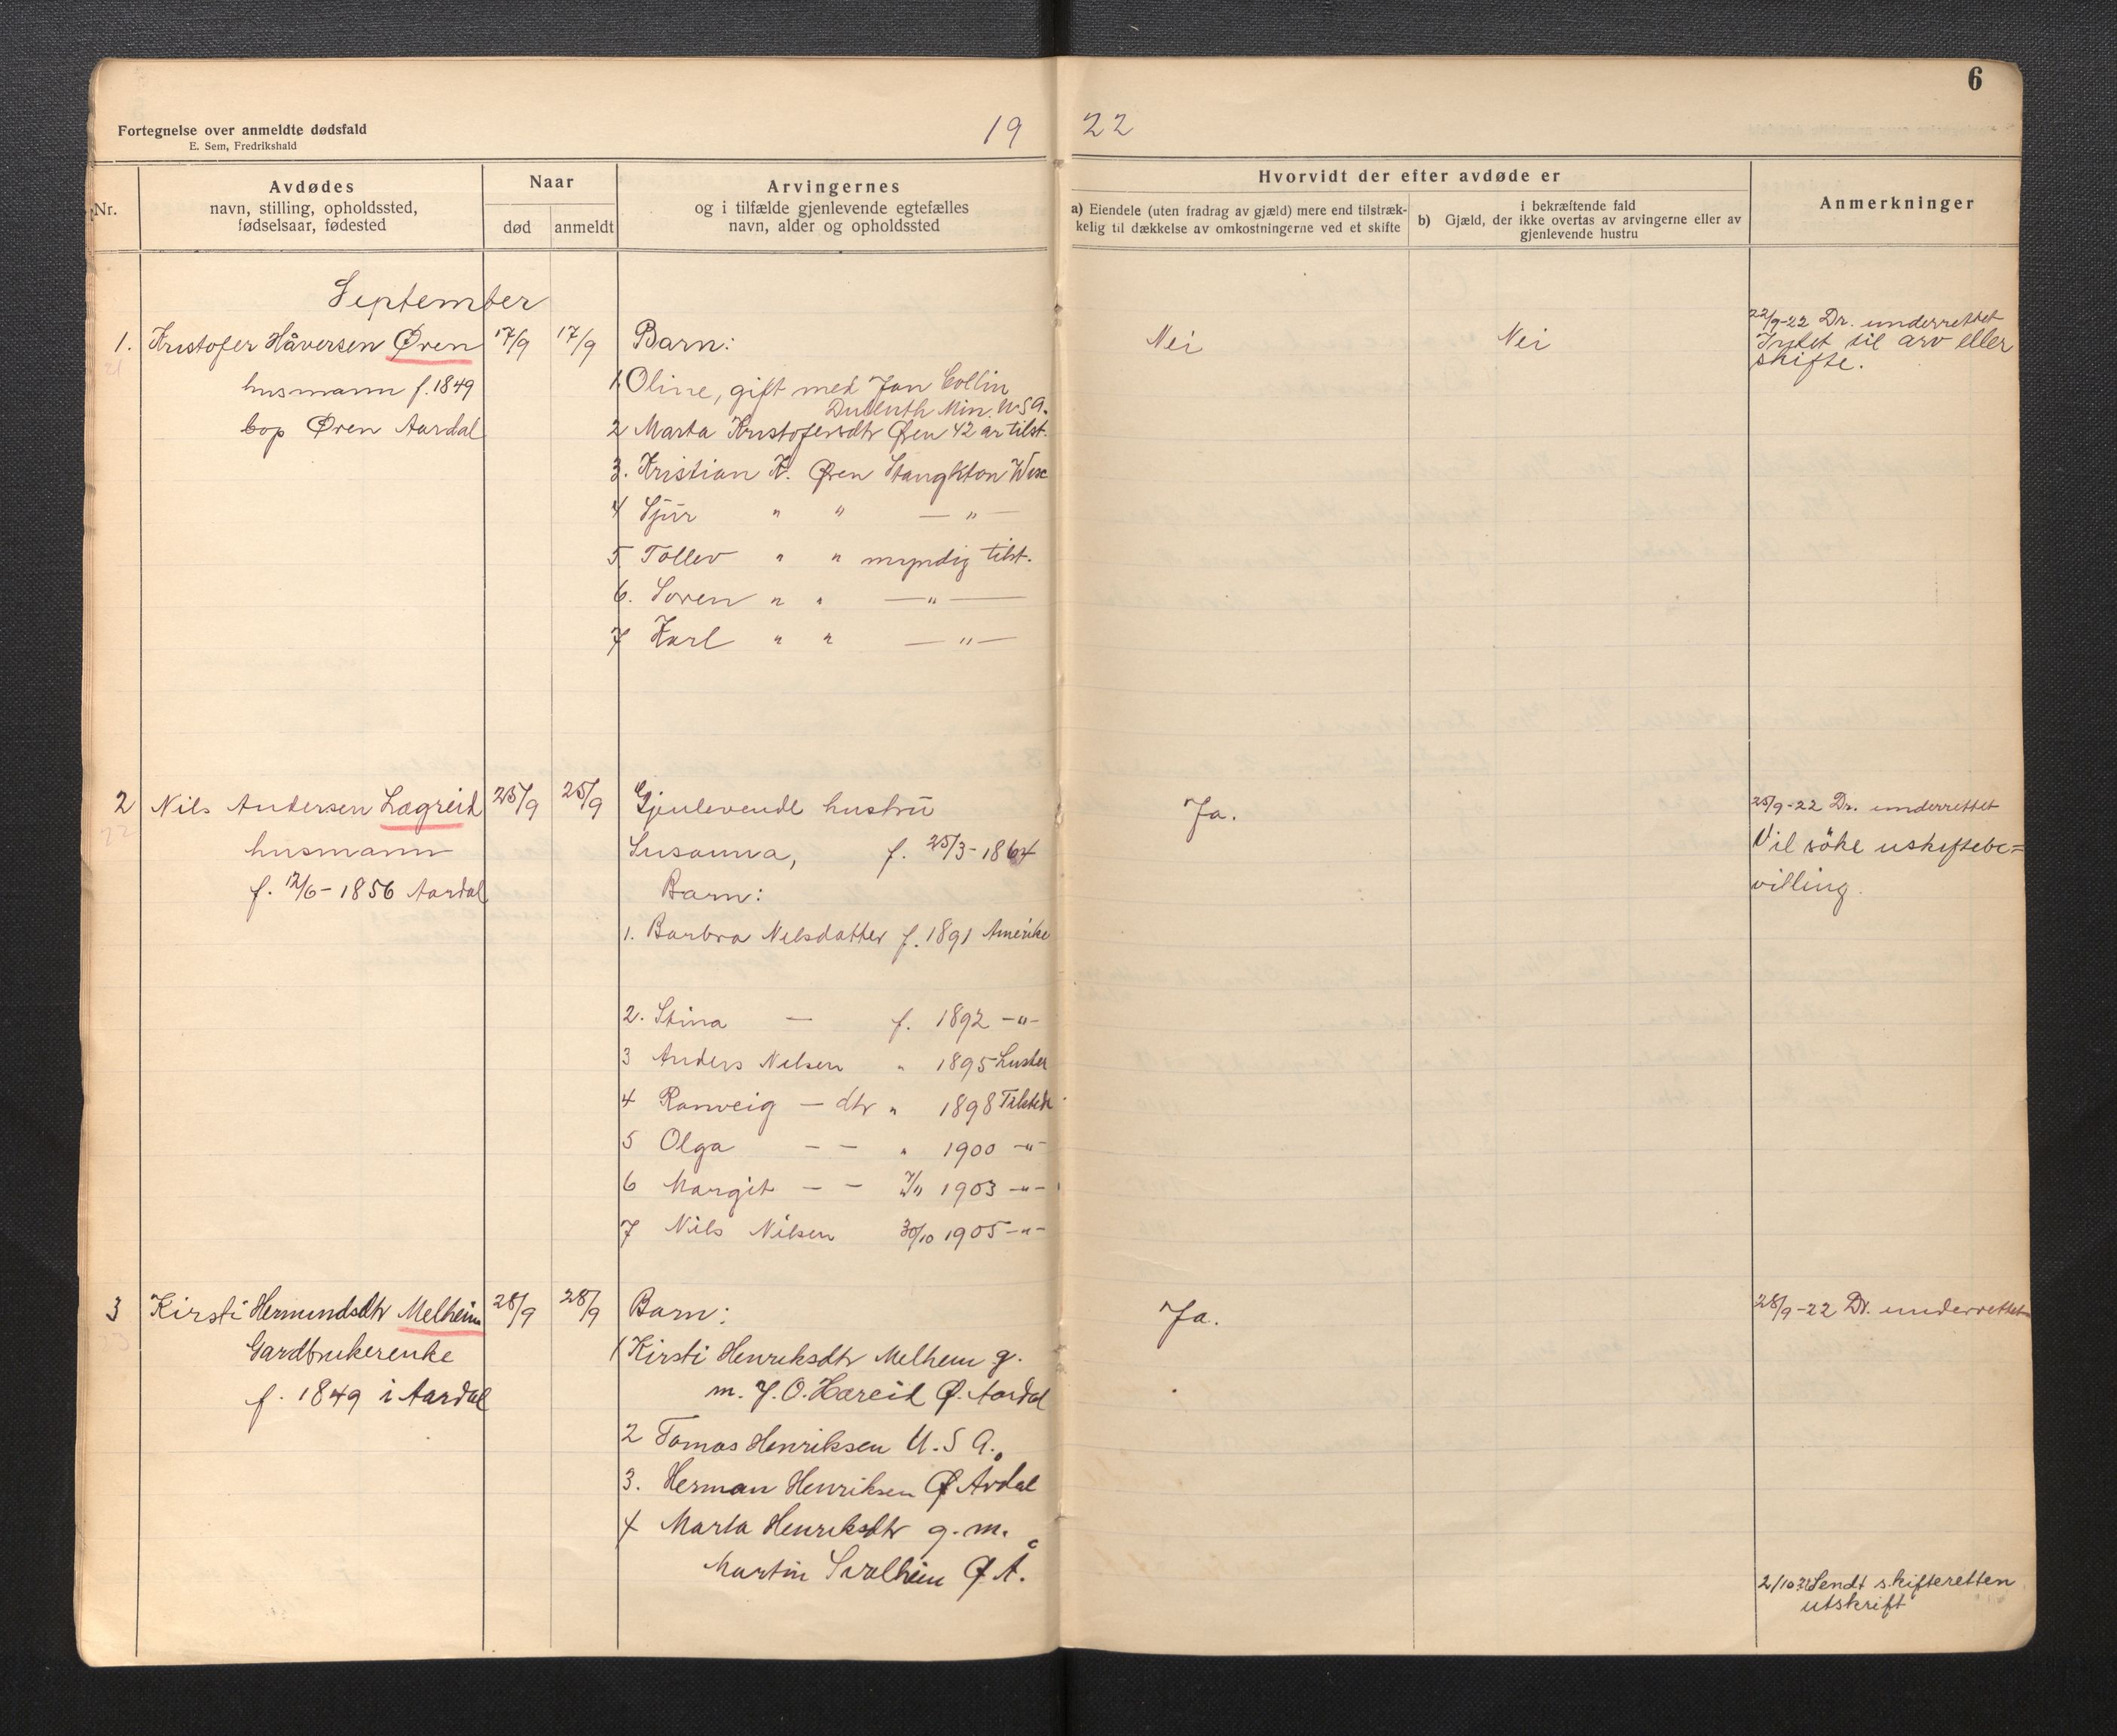 6
Fortegnelse over anmeldte dødsfald
E. Sem, Fredrikshald
19 22
Nr.
Avdødes
navn, stilling, opholdssted,
fødselsaar, fødested
Naar
død
anmeldt
Arvingernes
og i tilfælde gjenlevende egtefælles
navn, alder og opholdssted
Hvorvidt der efter avdøde er
a) Eiendele (uten fradrag av gjæld) mere end tilstræk-
kelig til dækkelse av omkostningerne ved et skifte
i bekræftende fald
b) Gjæld, der ikke overtas av arvingerne eller av
gjenlevende hustru
Anmerkninger
September
1. Kristofer Håversen Øren 17/9 17/9 Barn: Nei Nei
22/9-22 Dr. underrettet
Intet til arv eller
skifte.
husmann f. 1849
bop Øren Aardal
1 Oline, gift med Jan Collin
Duluth Min. U.S.A.
2 Marta Kristofersdtr Øren 42 ar tilst.
3. Kristian K. Øren Staughton Wisc
4 Sjur " " — " —
5 Tollev " " myndig tilst.
6. Soren " " — " —
7 Karl " " — " —
2 Nils Andersen Lægreid 25/9 25/9 Gjenlevende hustru Ja.
25/9-22 Dr. underrettet
Vil söke uskiftebe=
villing.
husmann
f. 12/6-1856 Aardal
Susanna, f. 25/3-1864
Barn:
1. Barbra Nilsdatter f. 1891 Amerika
2. Stina — f. 1892 -"-
3 Anders Nilsen " 1895 Luster
4 Ranveig — dtr " 1898 Tilstede
5 Olga — — " 1900 -"-
6 Margit — — 7/11 1903 -"-
7 Nils Nilsen 30/10 1905 -"-
3 Kirsti Hermundsdtr Melheim 28/9 28/9 Barn: Ja. 28/9-22 Dr. underrettet
Gardbrukerenke
f. 1849 i Aardal
1 Kirsti Henriksdtr Melheim g.
m. J. O. Hæreid Ø. Aardal
2 Tomas Henriksen U.S A.
3. Herman Henriksen Ø Årdal
4 Marta Henriksdtr g. m.
Martin Ø Å.
2/10 22 Sendt skifteretten
utskrift